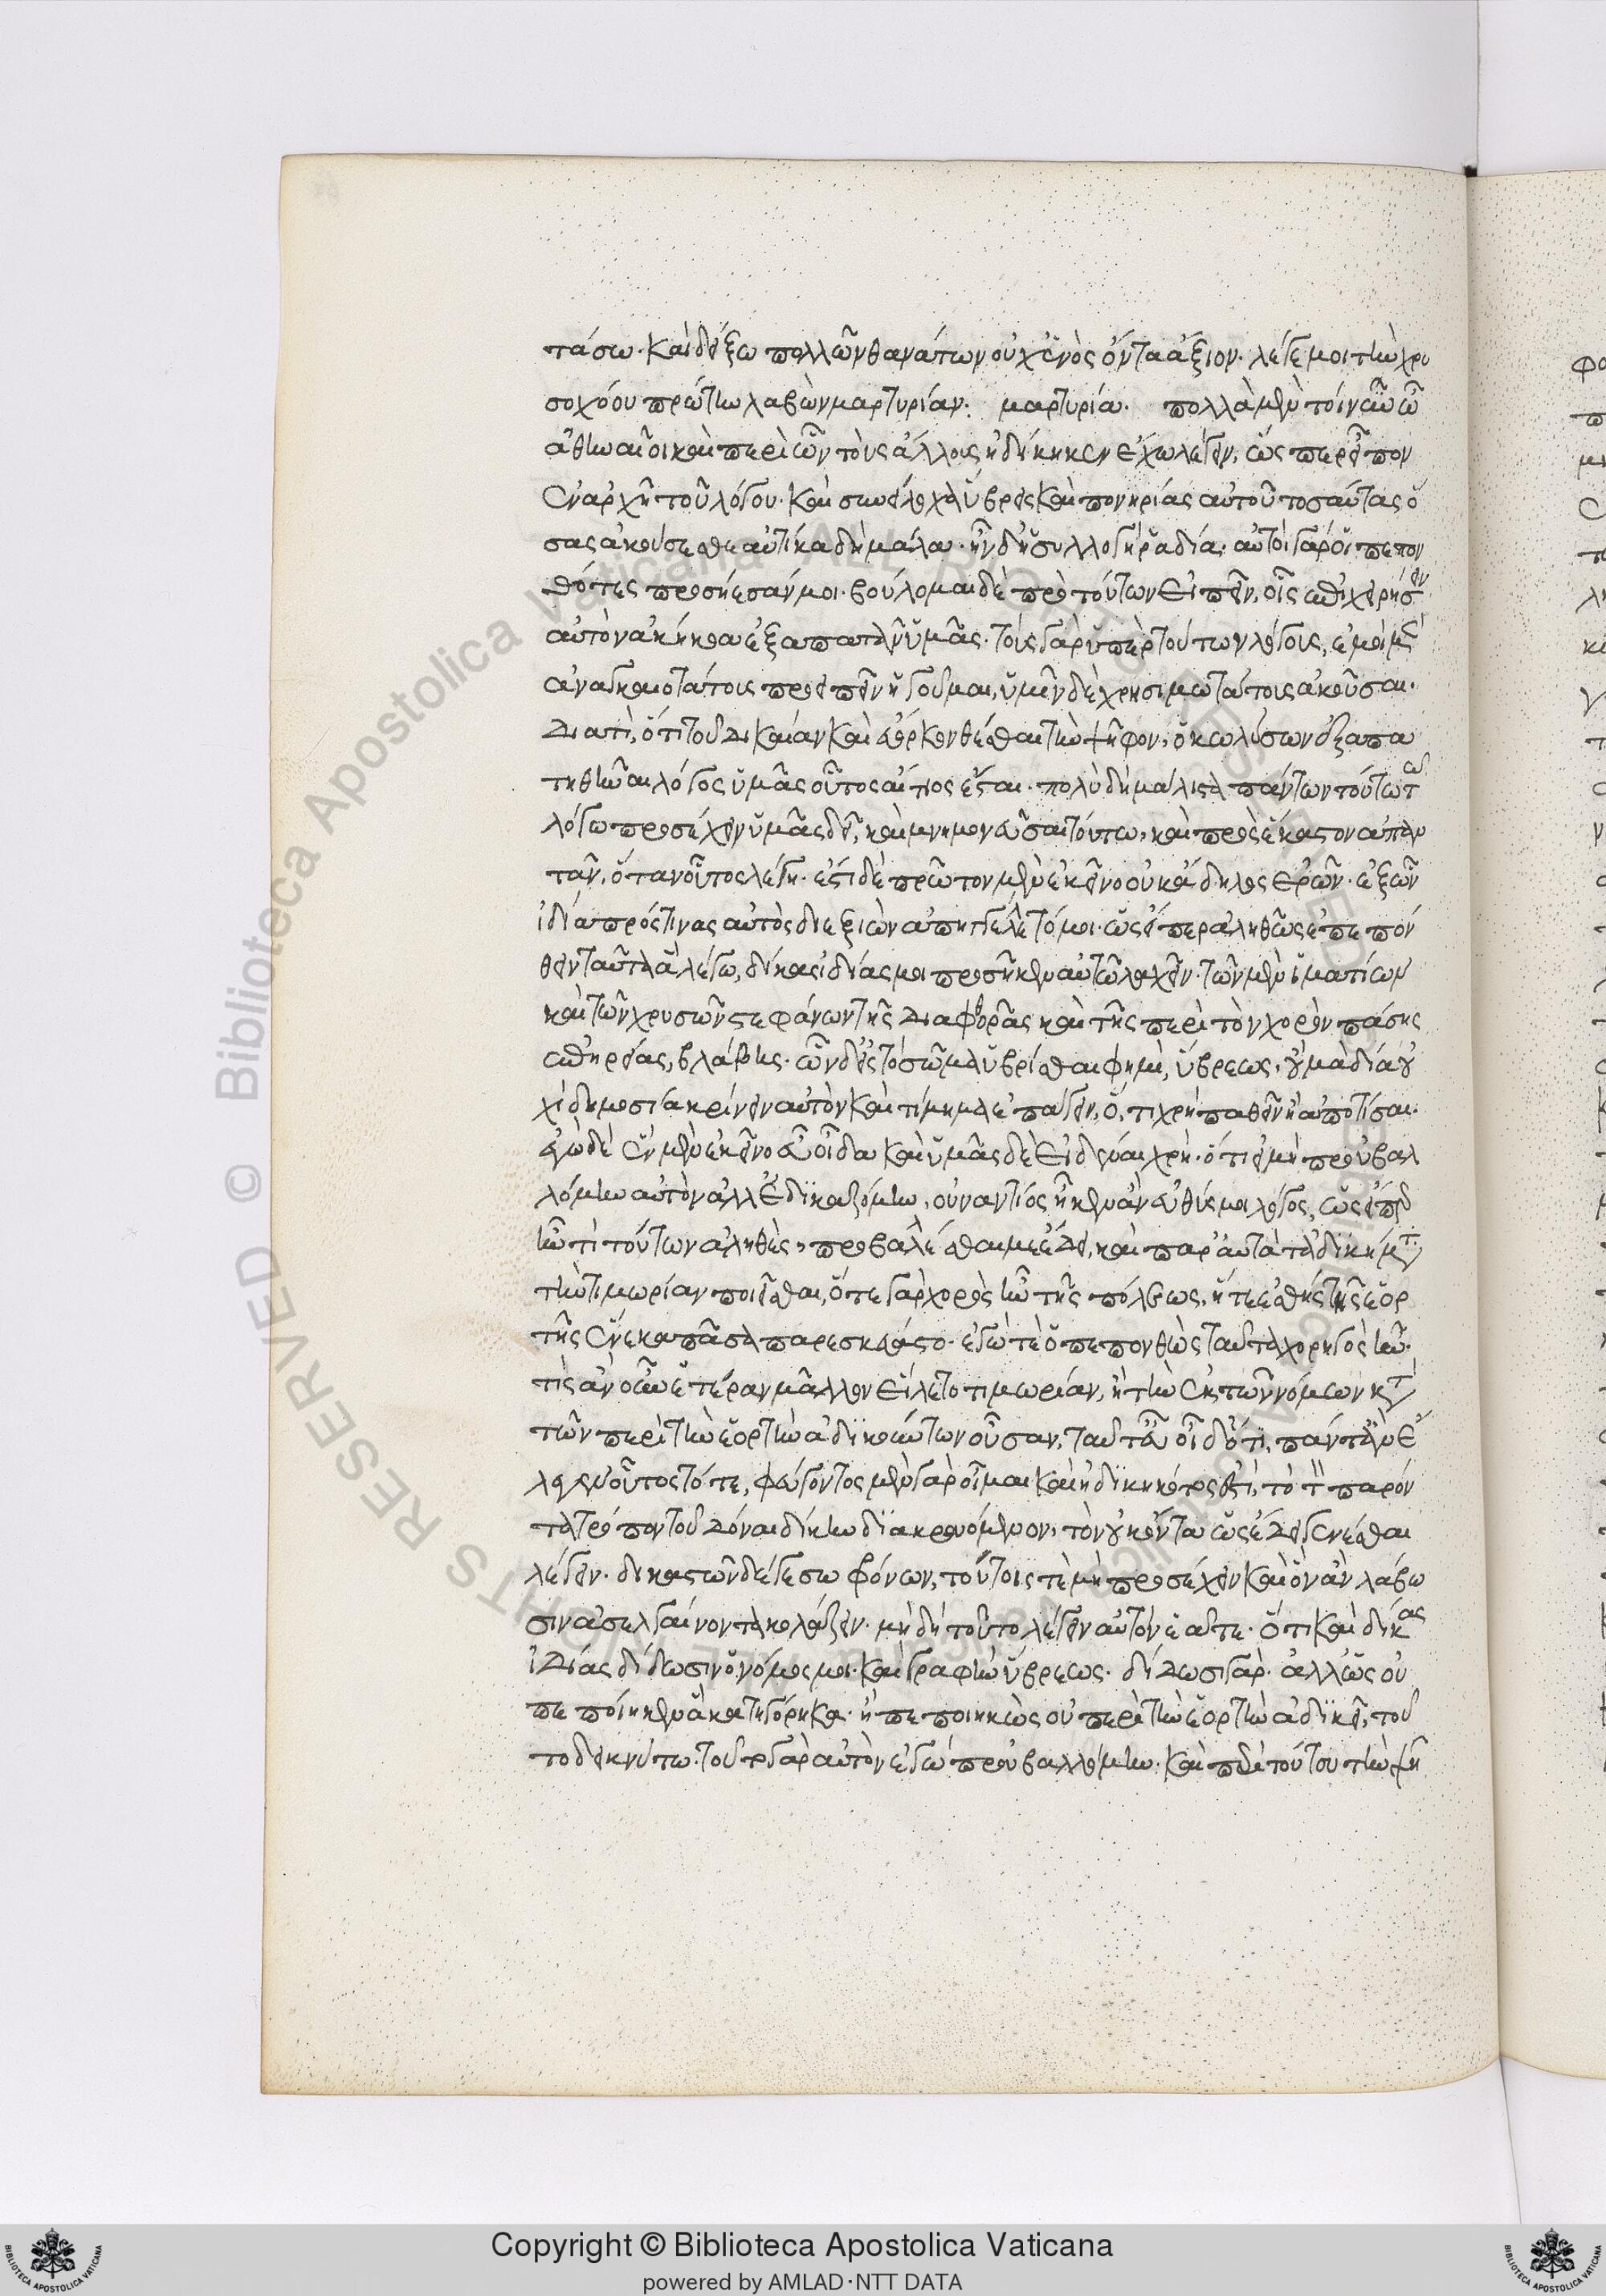 τάσω· καὶ δείξω πολλῶν θανάτων οὐχ ἑνὸς ὄντα ἄξιον· λέγε μοι τὴν χρυ
σοχόου πρώτην λαβὼν μαρτυρίαν· μαρτυρία· πολλὰ μὲν τοίνυν ὦ
ἀθηναῖοι καὶ περὶ ὧν τοὺς ἄλλους ἠδίκηκεν ἔχω λέγειν, ὥσπερ εἶπον
ἐν ἀρχῆ τοῦ λόγου· καὶ συνείλοχα ὕβρεις καὶ πονηρίας αὐτοῦ τοσαύτας ὅ
σας ἀκούσεσθε αὐτίκα δὴ μάλα· ἦν δ' ἡ συλλογὴ ῥαδία· αὐτοὶ γὰρ οἱ πεπον
θότες προσήεσάν μοι· βούλομαι δὲ πρὸ τούτων εἰπεῖν, οἷς ἐπιχειρήσειν
αὐτὸν ἀκήκοα ἐξαπατᾶν ὑμᾶς· τοὺς γὰρ ὑπὲρ τούτων λόγους, ἐμοὶ μὲν
ἀναγκαιοτάτους προειπεῖν ἡγοῦμαι, ὑμῖν δὲ χρησιμωτάτους ἀκοῦσαι·
Διατὶ, ὅτι τοῦ δικαίαν καὶ εὔορκον θέσθαι τὴν ψῆφον, ὁ κωλύσων ἐξαπα
τηθῆναι λόγος ὑμᾶς οὗτος αἴτιος ἔσται· πολὺ δὴ μάλιστα πάντων τούτω τῶ
λόγω προσέχειν ὑμᾶς δεῖ, καὶ μνημονεῦσαι τούτω, καὶ πρὸς ἕκαστον ἀπαν
τᾶν, ὅταν οὗτος λέγη· ἔστι δὲ πρῶτον μὲν ἐκεῖνο οὐκ ἄδηλος ἐρῶν· ἐξ ὧν
ἰδία πρός τινας αὐτὸς διεξιὼν ἀπηγγέλλετό μοι· ὡς εἴπερ ἀληθῶς ἐπεπόν
θειν ταῦτα ἃ λέγω, δίκας ἰδίας μοι προσῆκεν αὐτῶ λαχεῖν· τῶν μὲν ἱματίων
καὶ τῶν χρυσῶν στεφάνων τῆς διαφθορᾶς καὶ τῆς περὶ τὸν χορὸν πάσης
ἐπηρείας, βλάβης· ὧν δ' ἐς τὸ σῶμα ὑβρίσθαι φημὶ, ὕβρεως, οὐ μὰ δία οὐ
χὶ δημοσία κρίνειν αὐτὸν καὶ τίμημα ἐπάγειν, ὅ, τι χρὴ παθεῖν ἢ ἀποτίσαι·
ἐγὼ δὲ ἓν μὲν ἐκεῖνο εὖ οἶδα καὶ ὑμᾶς δὲ εἰδέναι χρὴ· ὅτι εἰ μὴ προὐβαλ
λόμην αὐτὸν ἀλλ' ἐδικαζόμην, οὑναντίος ἧκεν ἂν εὐθύς μοι λόγος, ὡς εἴπερ
ἦν τὶ τούτων ἀληθὲς, προβάλλεσθαί με ἔδει, καὶ παρ' αὐτὰ τὰ ἀδικήματα
τὴν τιμωρίαν ποιεῖσθαι, ὅ τε γὰρ χορὸς ἦν τῆς πόλεως, ἥ τε ἐσθὴς τῆς ἑορ
τῆς ἕνεκα πᾶσα παρεσκευάζετο· ἐγώ τε ὁ πεπονθὼς ταῦτα χορηγὸς ἦν·
τὶς ἂν οὖν ἑτέραν μᾶλλον εἵλετο τιμωρίαν, ἢ τὴν ἐκ τῶν νόμων κατὰ
τῶν περὶ τὴν ἑορτὴν ἀδικούντων οὖσαν, ταῦτ' εὖ οἶδ' ὅτι, πάντ' ἂν ἔ
λεγεν οὗτος τότε, φεύγοντος μὲν γὰρ οἶμαι καὶ ἠδικηκότος ἐστὶ, τὸ τὸν παρόν
τα τρόπον τοῦ δοῦναι δίκην διακρουόμενον, τὸν οὐκ ὄντα ὡς ἔδει γενέσθαι
λέγειν· δικαστῶν δέ γε σωφρόνων, τούτοις τὲ μὴ προσέχειν καὶ ὃν ἂν λάβω
σιν ἀσελγαίνοντα κολάζειν· μὴ δὴ τοῦτο λέγειν αὐτὸν ἐᾶτε· ὅτι καὶ δίκας
ἰδίας δίδωσιν ὁ νόμος μοι· καὶ γραφὴν ὕβρεως· δίδωσι γὰρ· ἀλλ' ὡς οὐ
πεποίηκεν ἃ κατηγόρηκα· ἢ πεποιηκὼς οὐ περὶ τὴν ἑορτὴν ἀδικεῖ, τοῦ
το δεικνύτω· τοῦτο γὰρ αὐτὸν ἐγὼ προὐβαλλόμην· καὶ περὶ τούτου τὴν ψῆ
Copyright © Biblioteca Apostolica Vaticana
powered by AMLAD·NTT DATA